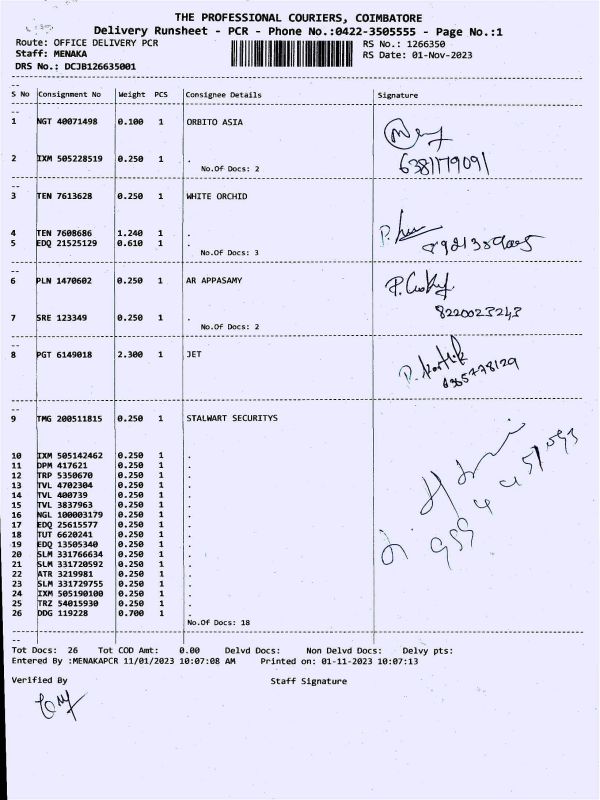 THE PROFESSIONAL COURIERS, COIMBATORE
Delivery Runsheet - PCR - Phone No.:0422-3505555 - Page No.:1
Route: OFFICE DELIVERY PCR RS No.: 1266350
Staff: MENAKA RS Date: 01-Nov-2023
DRS No.: DCJB126635001
S No Consignment No Weight PCS Consignee Details Signature
1 NGT 40071498 0.100 1 ORBITO ASIA
2 IXM 505228519 0.250 1 .
6381179091
No.Of Docs: 2
3 TEN 7613628 0.250 1 WHITE ORCHID
4 TEN 7608686 1.240 1 .
5 EDQ 21525129 0.610 1 .
No.Of Docs: 3
6 PLN 1470602 0.250 1 AR APPASAMY
7 SRE 123349 0.250 1 .
8220023243
No.Of Docs: 2
8 PGT 6149018 2.300 1 JET
P. Karthik
6385778129
9 TMG 200511815 0.250 1 STALWART SECURITYS
10 IXM 505142462 0.250 1 .
11 DPM 417621 0.250 1 .
12 TRP 5350670 0.250 1 .
13 TVL 4702304 0.250 1 .
14 TVL 400739 0.250 1 .
15 TVL 3837963 0.250 1 .
16 NGL 100003179 0.250 1 .
17 EDQ 25615577 0.250 1 .
18 TUT 6620241 0.250 1 .
19 EDQ 13505340 0.250 1 .
20 SLM 331766634 0.250 1 .
21 SLM 331720592 0.250 1 .
22 ATR 3219981 0.250 1 .
23 SLM 331729755 0.250 1 .
24 IXM 505190100 0.250 1 .
25 TRZ 54015930 0.250 1 .
26 DDG 119228 0.700 1 .
No.Of Docs: 18
Tot Docs: 26 Tot COD Amt: 0.00 Delvd Docs: Non Delvd Docs: Delvy pts:
Entered By :MENAKAPCR 11/01/2023 10:07:08 AM Printed on: 01-11-2023 10:07:13
Verified By Staff Signature